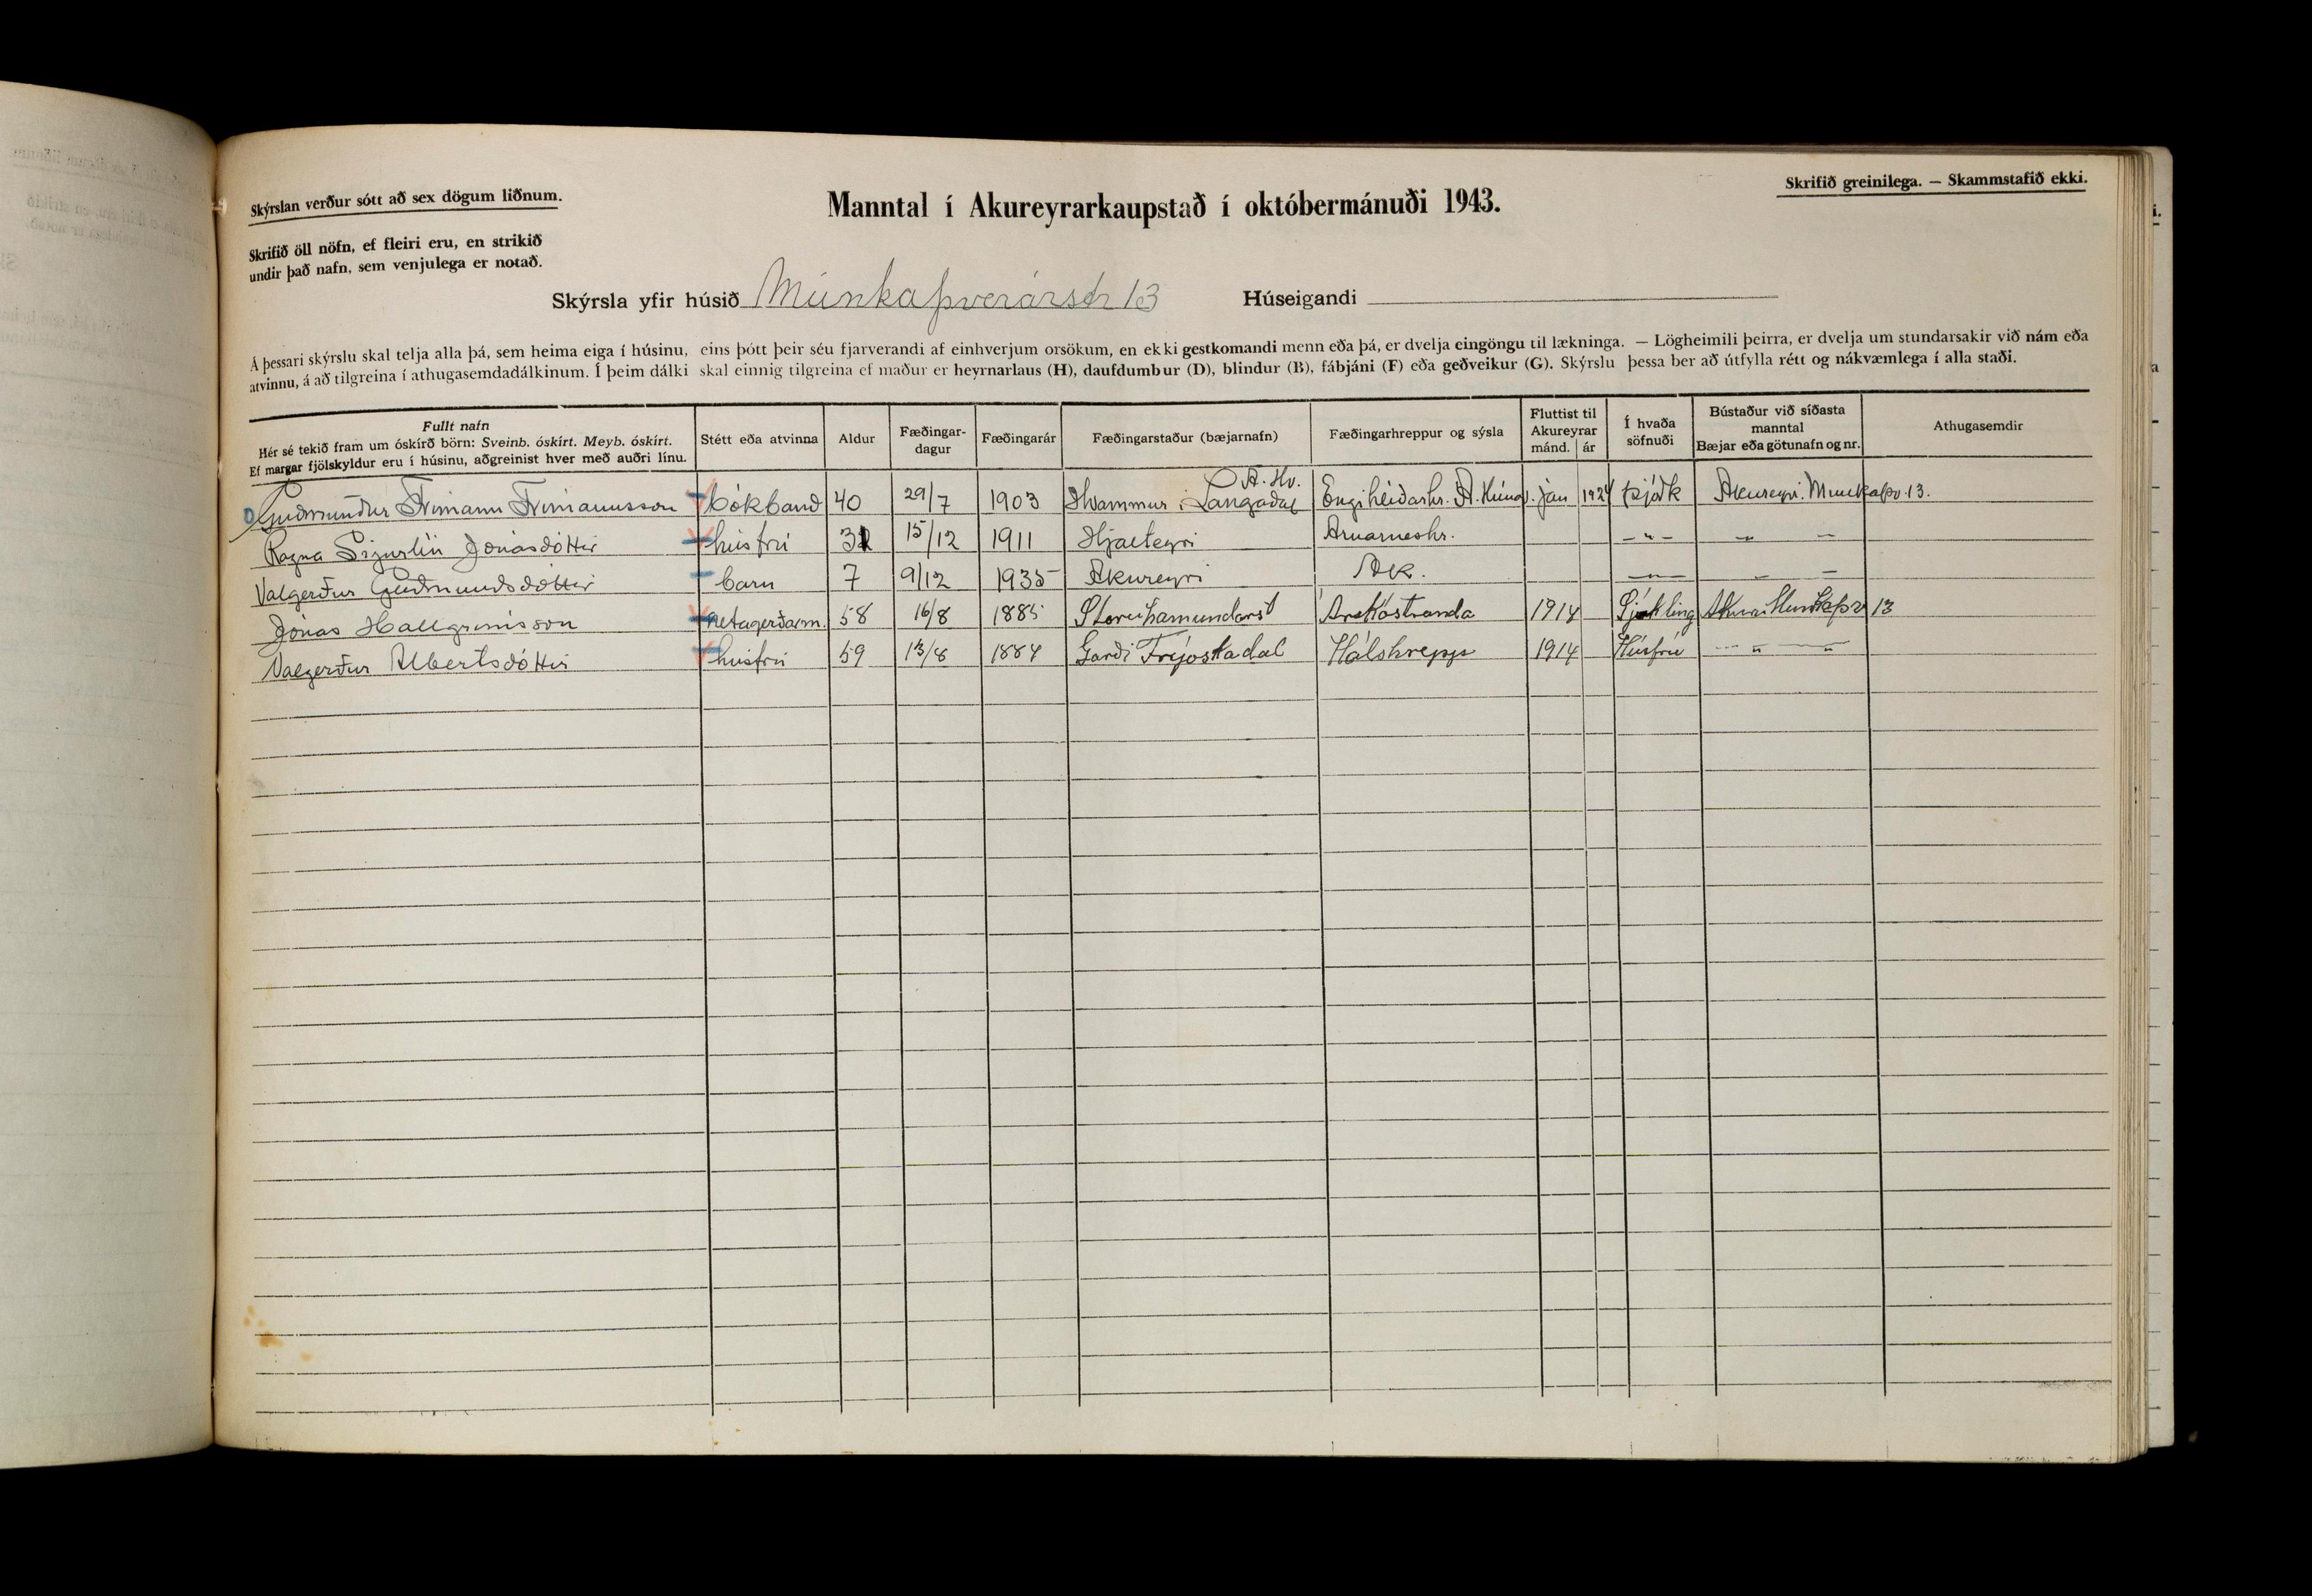 Skýrslan verður sótt að sex dögum liðnum.
Manntal í Akureyrarkaupstað í októbermánuði 1943.
Skrifið greinilega. — Skammstafið ekki.
Skrifið öll nöfn, ef fleiri eru, en strikið
undir það nafn, sem venjulega er notað.
Skýrsla yfir húsið Munkaþverárstr 13 Húseigandi
Á þessari skýrslu skal telja alla þá, sem heima eiga í húsinu, eins þótt þeir séu fjarverandi af einhverjum orsökum, en ekki gestkomandi menn eða þá, er dvelja eingöngu til lækninga. — Lögheimili þeirra, er dvelja um stundarsakir við nám eða
atvinnu, á að tilgreina í athugasemdadálkinum. Í þeim dálki skal einnig tilgreina ef maður er heyrnarlaus (H), daufdumbur (D), blindur (B), fábjáni (F) eða geðveikur (G). Skýrslu þessa ber að útfylla rétt og nákvæmlega í alla staði.
Fullt nafn
Hér sé tekið fram um óskírð börn: Sveinb. óskírt. Meyb. óskírt.
Ef margar fjölskyldur eru í húsinu, aðgreinist hver með auðri línu.
Stétt eða atvinna
Aldur
Fæðingar-
dagur
Fæðingarár
Fæðingarstaður (bæjarnafn)
Fæðingarhreppur og sýsla
Fluttist til
Akureyrar
mánd. ár
Í hvaða
söfnuði
Bústaður við síðasta
manntal
Bæjar eða götunafn og nr.
Athugasemdir
A. Hv.
Guðmundur Frímann Frímannsson bókband 40 29/7 1903 Hvammur i Langadal Engihlíðarhr. A. Húnav. jan 1924 þjóðk Akureyri. Munkaþv. 13.
Ragna Sigurlín Jónasdóttir húsfrú 32 15/12 1911 Hjalteyri Arnarneshr. — " — " —
Valgerður Guðmundsdóttir barn 7 9/12 1935 Akureyri Ak. — " — " —
Jónas Hallgrímsson netagerðarm. 58 16/8 1885 Stóruhámundarst Árskóstranda 1914 13
Valgerður Albertsdóttir húsfrú 59 13/8 1884 Garði Fnjóskadal Hálshrepp 1914 Húsfrú — " — " —